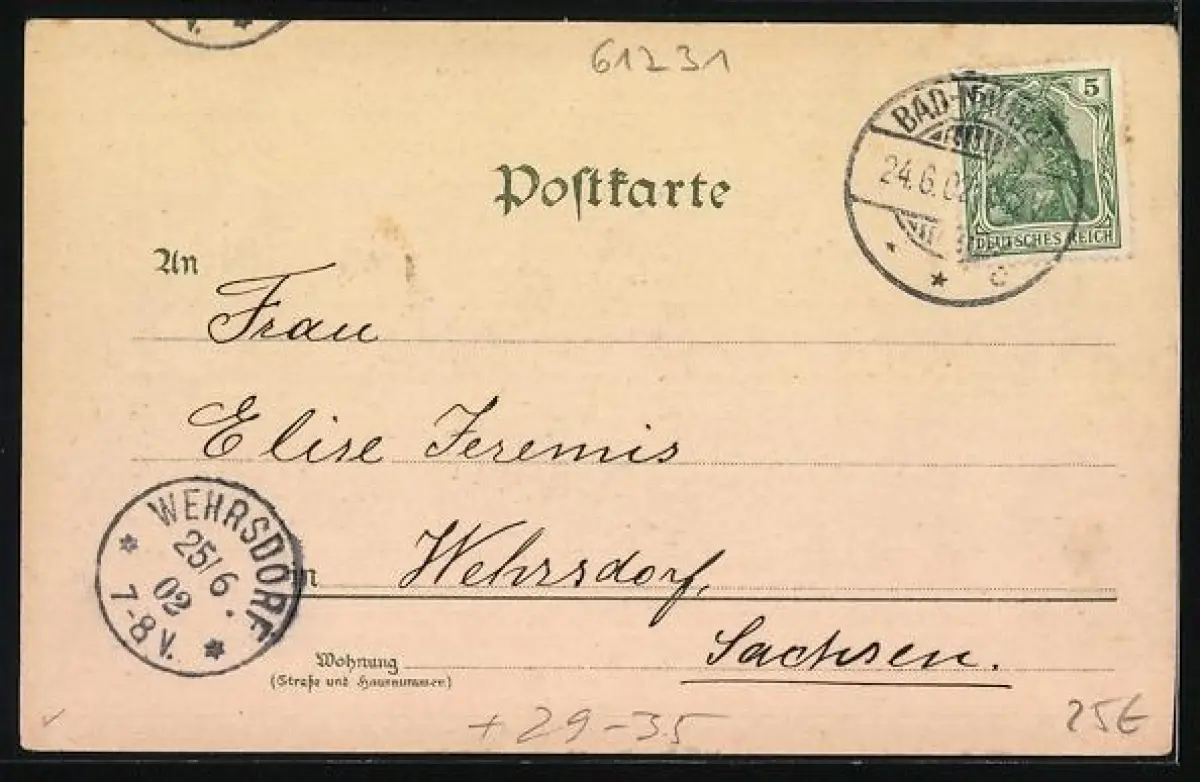 V.
61231
5
BAD-NAUHEIM
24.6.02
DEUTSCHES REICH
* c
Postkarte
An
Frau
Elise Jeremis
WEHRSDORF
25/6
02
7-8 V.
in Wehrsdorf,
Sachsen.
Wohnung
(Straße und Hausnummer)
+ 29-35
25€